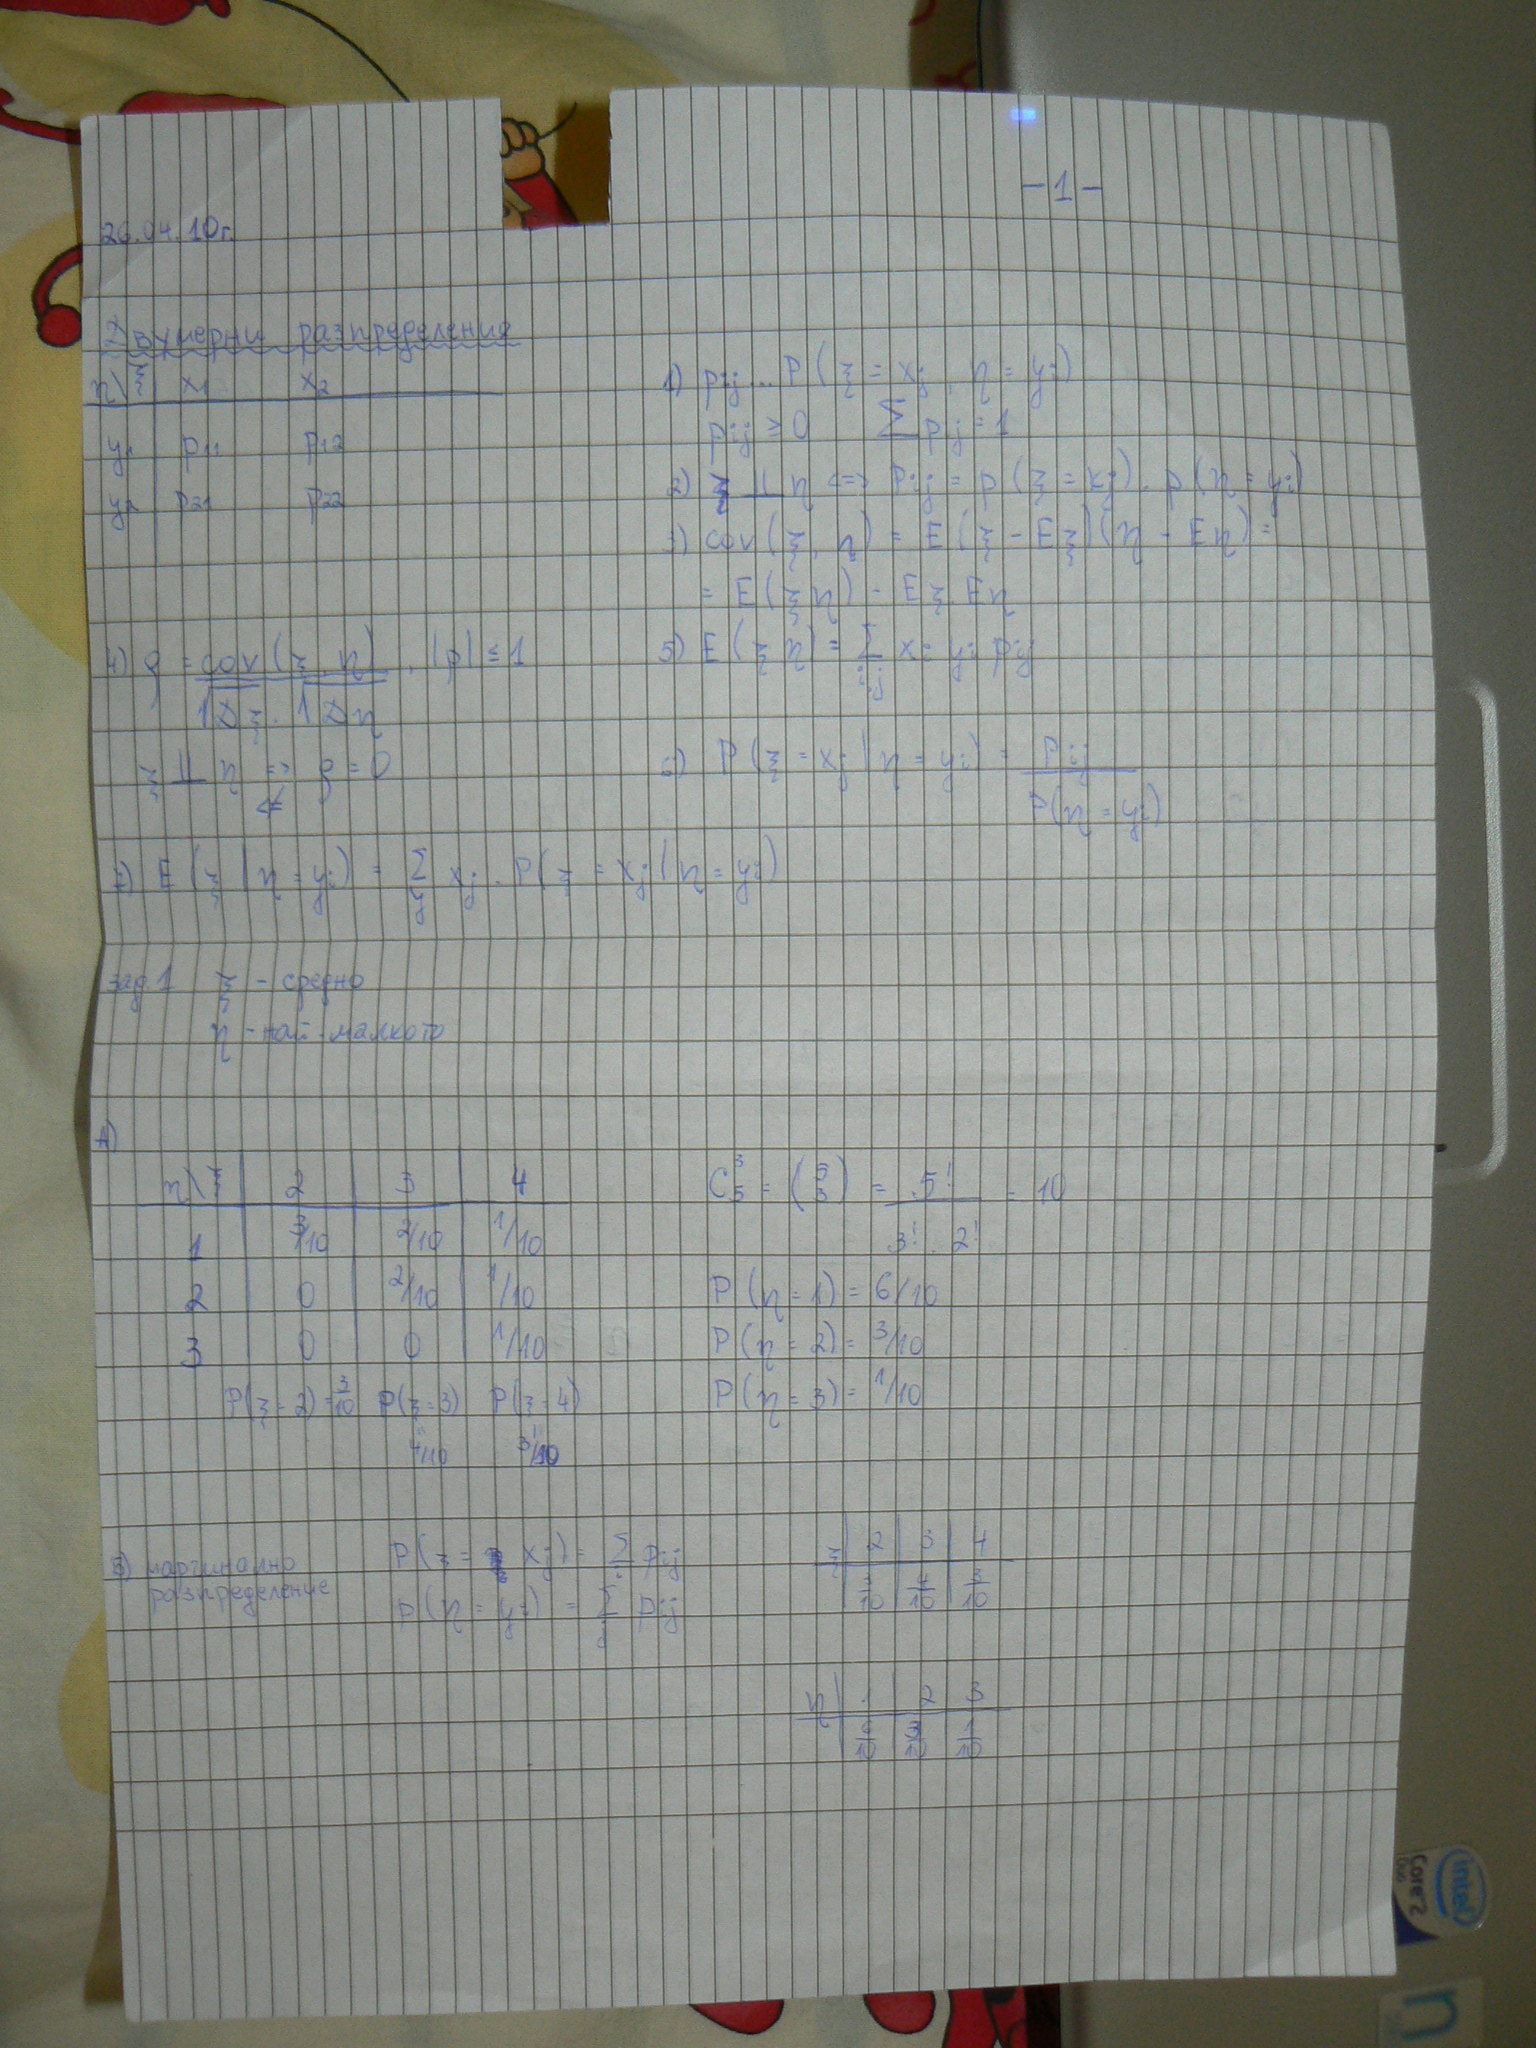 -1-
26.04.10г.
Двумерни разпределения
η\ξ x₁ x₂
y₁ p₁₁ p₁₂
y₂ p₂₁ p₂₂
1) pij ... P(ξ = xj, η = yi)
pij ≥ 0 Σ pij = 1
2) ξ ⫫ η <=> Pij = p(ξ = xj) . p(η = yi)
3) cov(ξ, η) = E(ξ - Eξ)(η - Eη) =
= E(ξη) - Eξ.Eη
4) ρ = cov(ξ, η) / √Dξ . √Dη , |ρ| ≤ 1
ξ ⫫ η => ρ = 0
⇍
5) E(ξη) = Σ i,j xi yi pij
6) P(ξ = xj | η = yi) = Pij / P(η = yi)
7) E(ξ | η = yi) = Σ y xj . P(ξ = xj | η = yi)
зад.1 ξ - средно
η - най-малкото
A)
η\ξ 2 3 4
1 3/10 2/10 1/10
2 0 2/10 1/10
3 0 0 1/10
P(ξ = 2) = 3/10 P(ξ = 3) P(ξ = 4)
4/10 3/10
C₅³ = (5 3) = 5! / 3! . 2! = 10
P(η = 1) = 6/10
P(η = 2) = 3/10
P(η = 3) = 1/10
Б) маргинално
разпределение
P(ξ = xj) = Σ i pij
p(η = yi) = Σ j pij
ξ 2 3 4
3/10 4/10 3/10
η 1 2 3
6/10 3/10 1/10
intel
Core 2
Duo
n